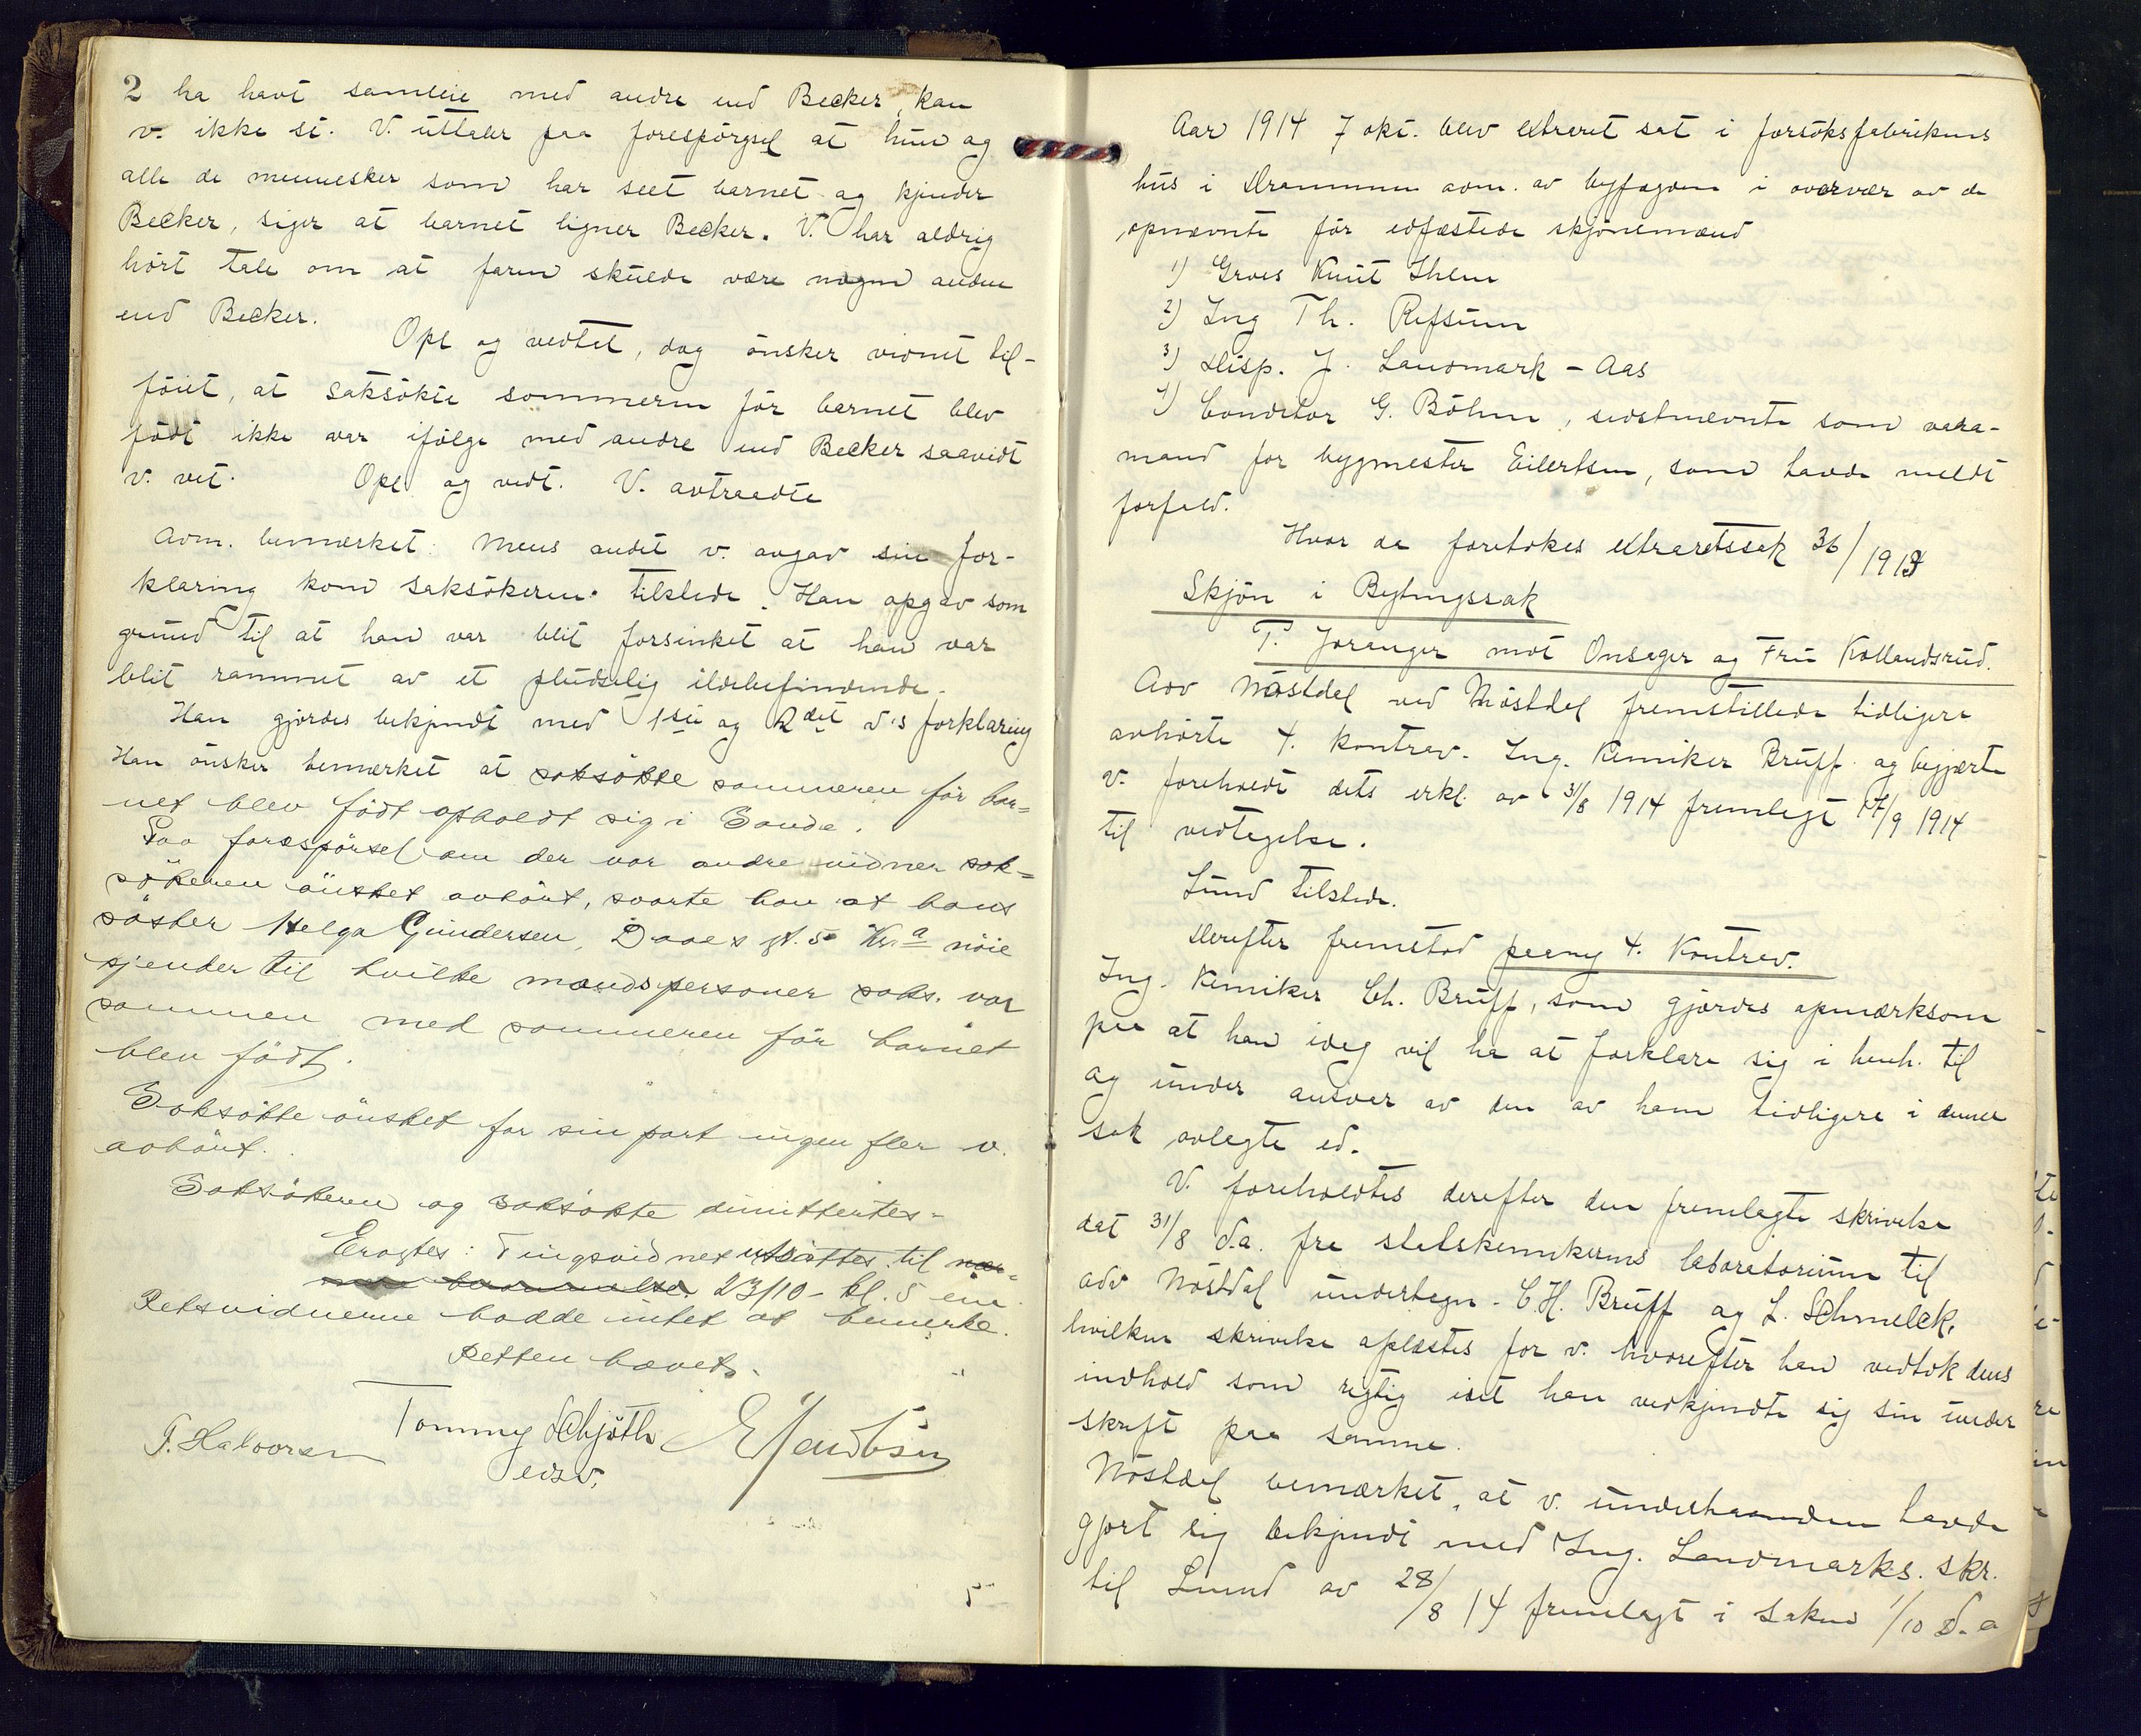 2 ha havt samleie med andre end Becker, kan
v. ikke si. V. uttaler paa forespörgsel at hun og
alle de mennesker som har seet barnet og kjender
Becker, siger at barnet ligner Becker. V. har aldrig
hört tale om at faren skulde være nogen anden
end Becker.
Opl og vedtet, dog önsker vidnet til-
föiet, at saksökte sommeren för barnet blev
födt ikke var ifölge med andre end Becker saavidt
v. vet. Opl og vedt. V. avtraadte
Adm. bemerket: Mens andet v. avgav sin for-
klaring kom saksökeren tilstede. Han opgav som
grund til at han var blit forsinket at han var
blit rammet av et pludselig ildebefindende.
Han gjordes bekjendt med 1ste og 2det v's forklaring
Han önsker bemerket at saksökte sommeren för bar=
net blev födt opholdt sig i Sande.
Paa forespörsel om der var andre vidner sak=
sökeren önsket avhört, svarte han at hans
söster Helga Gundersen, Daaes gt. 5 Kra nöie
kjender til hvilke mandspersoner saks. var
sammen med sommeren för barnet
blev födt.
Saksökte önsket for sin part ingen fler v.
avhört.
Saksökeren og saksökte dimittertes=
Eragtes: Tingsvidnet utsættes til
23/10 - kl. 5 em
Retsvidnerne hadde intet at bemerke.
Retten hævet.
T. Halvorsen Tommy Schjöth E Jacobsen
edsv.
Aar 1914 7 okt. blev extraret sat i forsöksfabrikens
hus i Drammen adm. av byfogden i overvær av de
opnævnte för edfæstede skjönsmænd
1) Gross Knut Ihlen
2) Ing Th. Refsum
3) Disp. J. Landmark - Aas
4) Conditor G. Böhm, sidstnævnte som vara-
mand for bygmester Eilertsen, som havde meldt
forfald.
Hvor da foretokes extraretssak 36/1914
Skjön i Bytingssak
T. Joranger mot Onsager og Fru Kollandsrud.
Adv Nöstdal ved Nöstdal fremstillede tidligere
avhörte 4. kontrav. Ing. Kemiker Bruff og begjærte
v. foreholdt dets erkl. av 31/8 1914 fremlagt 17/9 1914
til vedtagelse.
Lund tilstede.
Derefter fremstod paany 4. Kontrav.
Ing. Kemiker Ch. Bruff, som gjordes opmærksom
paa at han idag vil ha at forklare sig i henh. til
og under ansvar av den av ham tidligere i denne
sak avlagte ed.
V. foreholdtes derefter den fremlagte skrivelse
dat 31/8 d.a. fra statskemikerens laboratorium til
adv Nöstdal undertegn. C.H. Bruff og L. Schmelck,
hvilken skrivelse oplæstes for v. hvorefter han vedtok dens
indhold som rigtig idet han vedkjendte sig sin under
skrift paa samme.
Nöstdal bemærket, at v. underhaanden havde
gjort sig bekjendt med Ing. Landmarks. skr.
til Lund av 28/8 14 fremlagt i saken 1/10 d.a